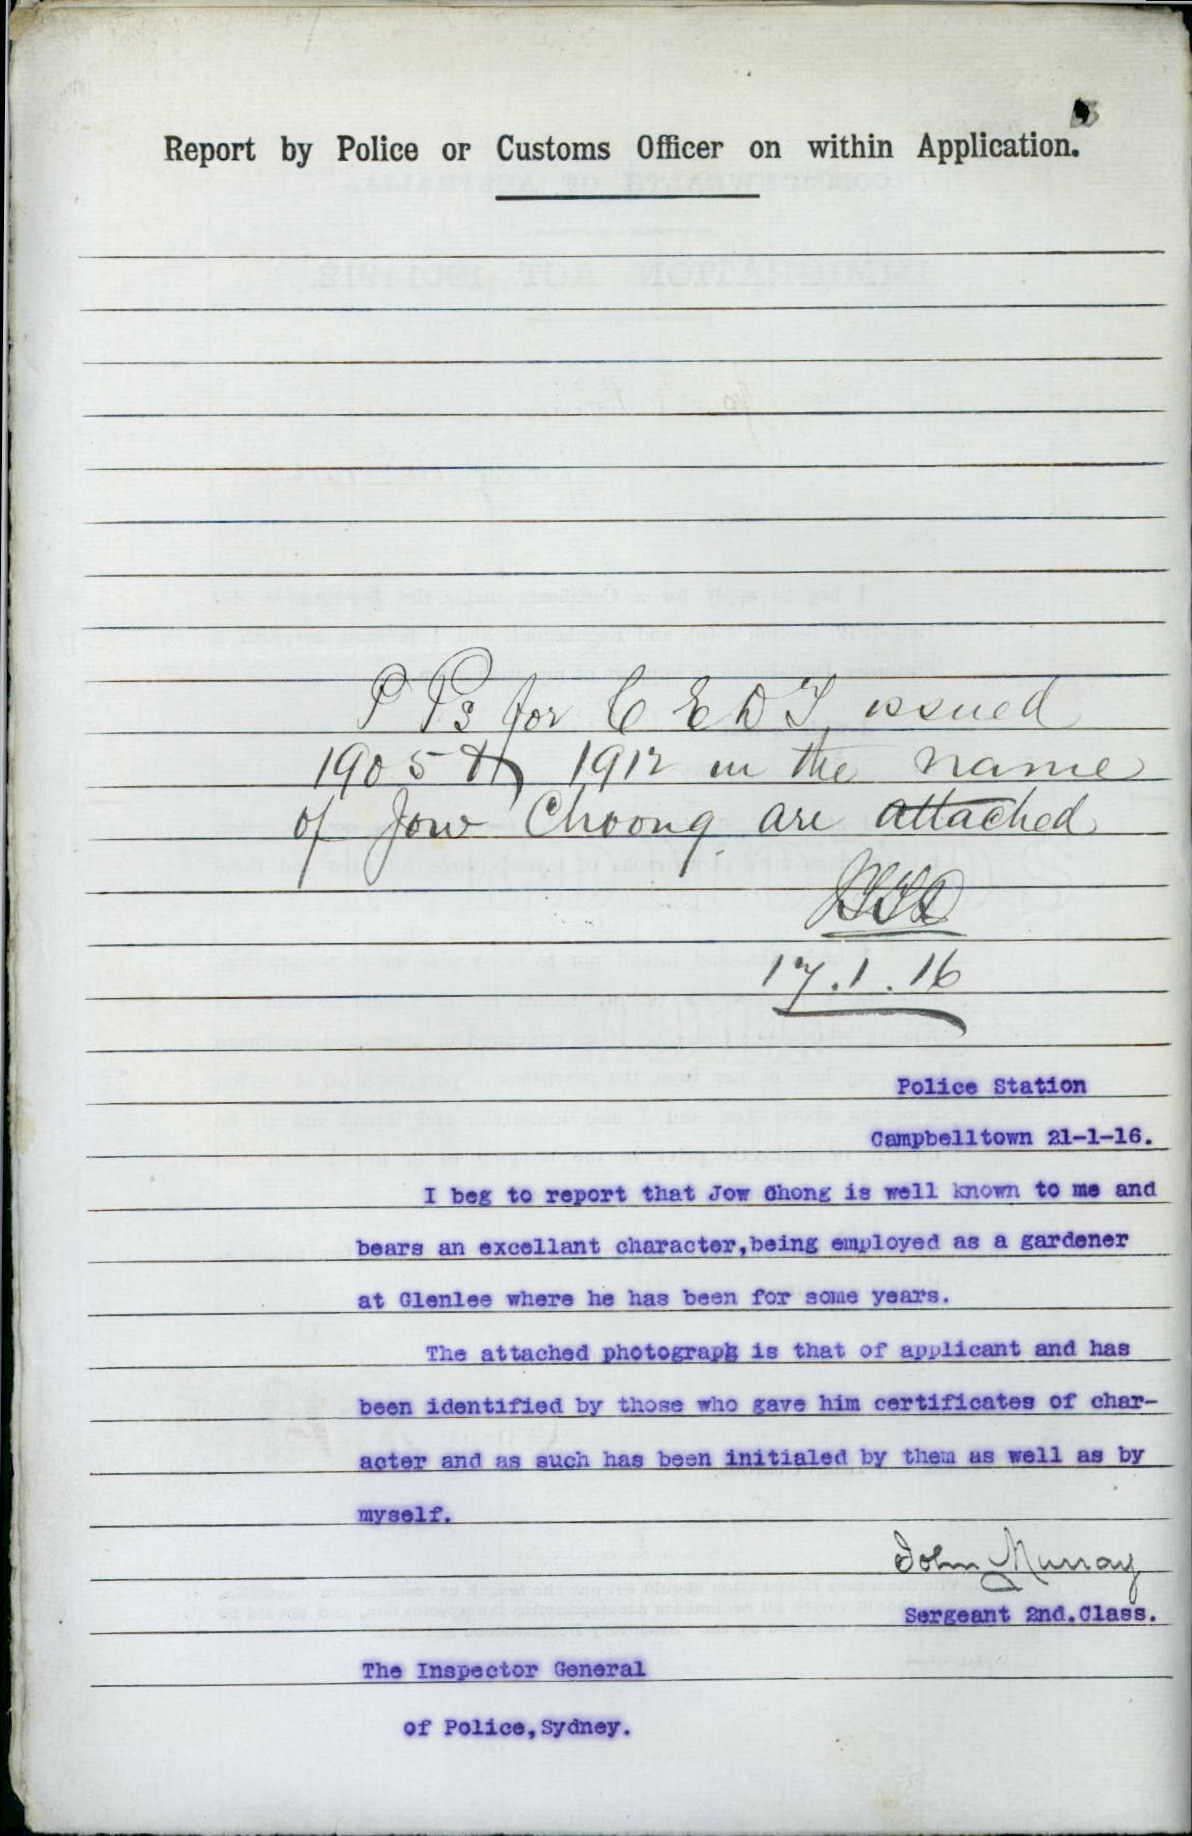 Report by Police or Customs Officer on within Application.
P Ps for C E D T issued
1905 & 1912 in the name
of Jow Choong are attached
17.1.16
Police Station
Campbelltown 21-1-16.
I beg to report that Jow Chong is well known to me and
bears an excellant character,being employed as a gardener
at Glenlee where he has been for some years.
The attached photograph is that of applicant and has
been identified by those who gave him certificates of char-
acter and as such has been initialed by them as well as by
myself.
John Murray
Sergeant 2nd.Class.
The Inspector General
of Police,Sydney.